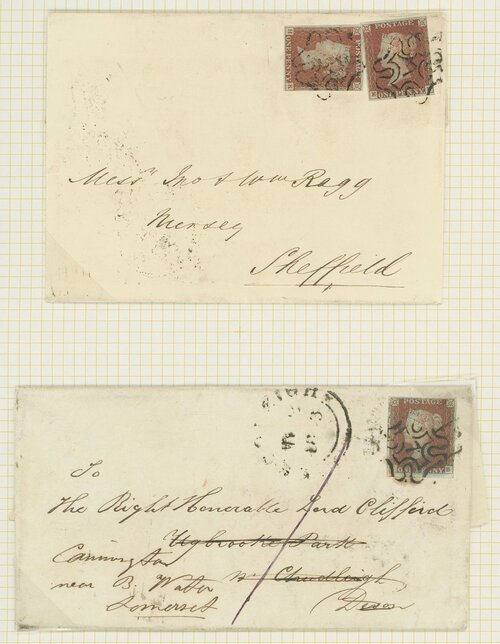 POSTAGE
ONE PENNY
ONE PENNY
Messrs Jno & Wm Ragg
Nursery
Sheffield
POSTAGE
To
The Right Honorable Lord Clifford
Ugbrooke Park
Cannington
near B. Water
Nr Chudleigh
Somerset
Devon